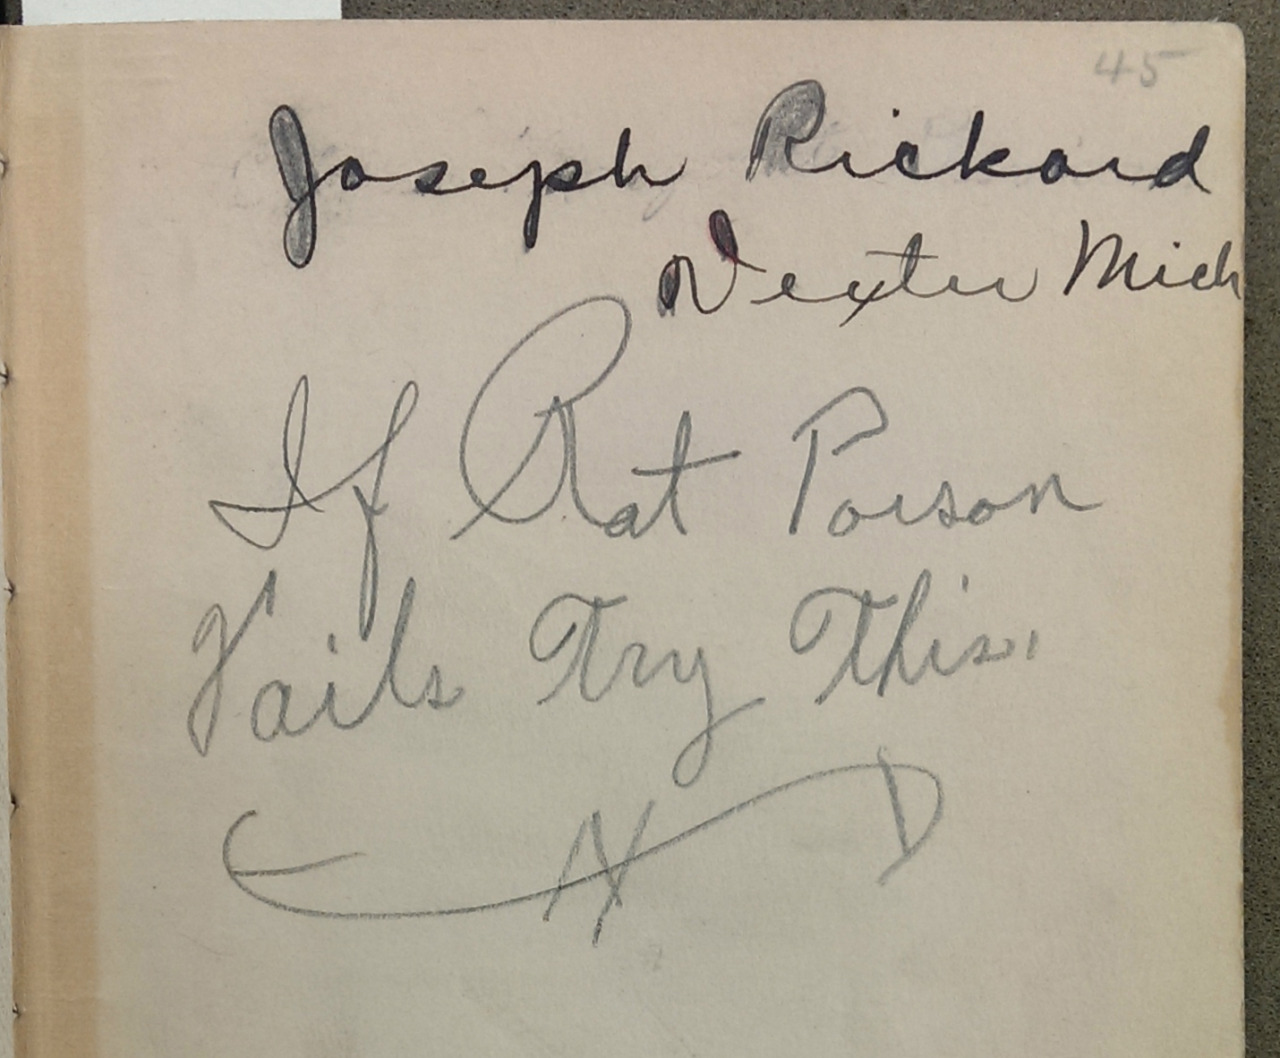 45
Joseph Rickard
Dexter Mich
If Rat Poison
Fails Try This.
END